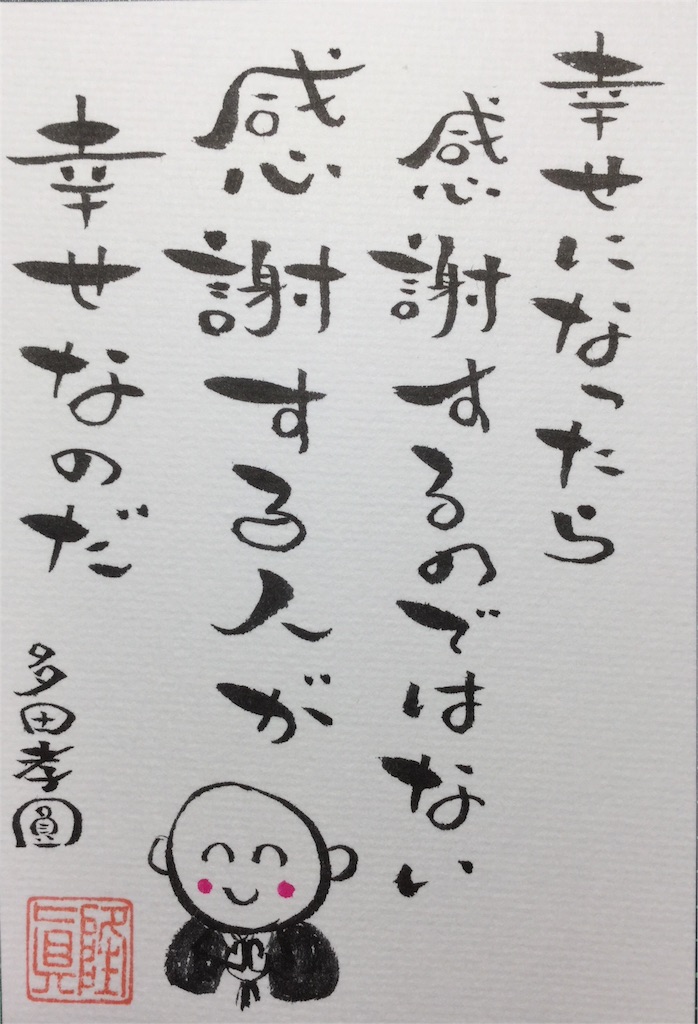 幸せになったら
感謝するのではない
感謝する人が
幸せなのだ
多田孝圓